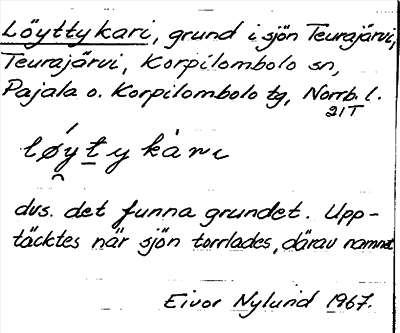 Löyttykari, grund i sjön Teurajärvi,
Teurajärvi, Korpilombolo sn,
Pajala o. Korpilombolo tg, Norrb. l.
21T
lǿy̯ṯy kàrı
dvs. det funna grundet. Upp-
täcktes när sjön torrlades, därav namnet
Eivor Nylund 1967.